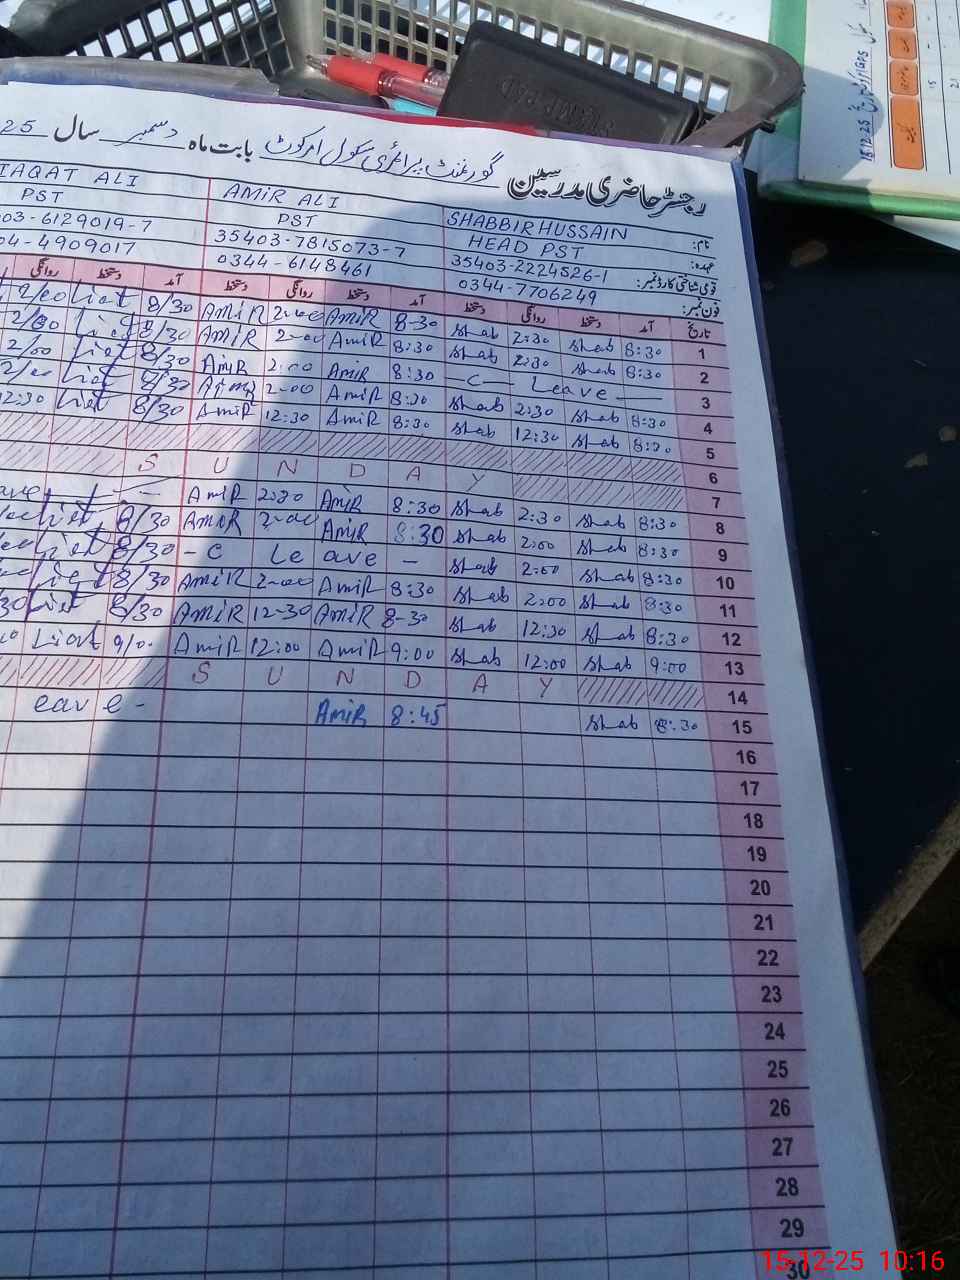 رجسٹر حاضری مدرسین گورنمنٹ پرائمری سکول بابت ماہ دسمبر سال 25
نام: SHABBIR HUSSAIN AMIR ALI IAQAT ALI
عہدہ: HEAD PST PST PST
قومی شناختی کارڈ نمبر: 35403-2224526-1 35403-7815073-7 03-6129019-7
فون نمبر: 0344-7706249 0344-6148461 04-4909017
تاریخ آمد دستخط روانگی دستخط آمد دستخط روانگی دستخط آمد دستخط روانگی
1 8:30 Shab 2:30 Shab 8-30 AMiR 2-00 AMiR 8/30 Liat 2/00
2 8:30 Shab 2:30 Shab 8:30 AmiR 2-00 AMiR 8/30 2/00
3 Leave -C- 8:30 AmiR 2:00 AmiR 8/30 2/00
4 8:30 Shab 2:30 Shab 8:30 AmiR 2-00 8/30
5 Shab 12:30 Shab 8:30 AmiR 12:30 AmiR 8/30 12:30
6
7 S U N D A Y
8 8:30 Shab 2:30 Shab 8:30 AmiR AmiR
9 8:30 Shab 2:00 Shab 8:30 AmiR 2-00 AmiR 8/30
10 8:30 Shab 2:00 Shab - C Leave - 8/30
11 8:30 Shab 2:00 Shab 8:30 AmiR 2-00 AMiR 8/30
12 8:30 Shab 12:30 Shab 8-30 AmiR 12-30 AMiR 8/30
13 9:00 Shab 12:00 Shab 9:00 AmiR 12:00 AmiR 9/0. Liat
14 S U N D A Y
15 8:30 Shab 8:45 AmiR eave -
16
17
18
19
20
21
22
23
24
25
26
27
28
29
30
15-12-25 10:16